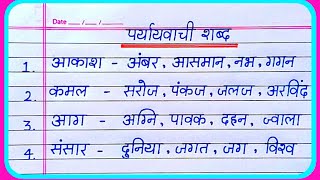 Date / /
पर्यायवाची शब्द
1. आकाश - अंबर, आसमान, नभ, गगन
2. कमल - सरोज, पंकज, जलज, अरविंद
3. आग - अग्नि, पावक, दहन, ज्वाला
4. संसार - दुनिया, जगत, जग, विश्व